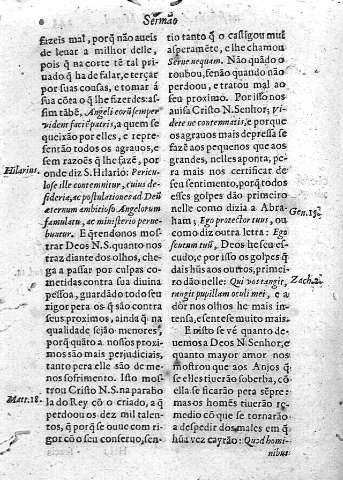 Sermão
fazeis mal, porq̃ não aueis
de leuar a milhor delle,
pois q̃ na corte tẽ tal pri-
uado q̃ ha de falar, e terçar
por suas cousas, e tomar á
sua cõta o q̃ lhe fizerdes: as-
sim tãbẽ, Angeli eorũ semper
vident faciẽ patris, a quem se
queixão por elles, e repre-
sentão todos os agrauos, e
sem razões q̃ lhe fazẽ, por
onde diz S. Hilario: Pericu-
lose ille contemnitur, cuius de-
sideria, ac postulationes ad Deũ
æternum ambitioso Angelorum
famulatu, ac ministerio perue-
buntur. E q̃rendonos mos-
trar Deos N.S. quanto nos
traz diante dos olhos, che-
ga a passar por culpas co-
metidas contra sua diuina
pessoa, guardado todo seu
rigor pera os q̃ são contra
seus proximos, ainda q̃ na
qualidade sejão menores,
porq̃ quãto a nossos proxi-
mos são mais perjudiciais,
tanto pera elle são de me-
nos sofrimento. Isto mos-
trou Christo N.S. na parabo
la do Rey cõ o criado, a q̃
perdoou os dez mil talen-
tos, q̃ porq̃ se ouue com ri-
gor cõ o seu conseruo, sen-
Hilarius.
Matt. 18.
tio tanto q̃ o castigou mui
asperamẽte, e lhe chamou
Serue nequam. Não quãdo o
roubou, senão quando não
perdoou, e tratou mal ao
seu proximo. Por isso nos
auisa Cristo N. Senhor; vi-
dete ne contemnatis, e porque
os agrauos mais depressa se
fazẽ aos pequenos que aos
grandes, nelles aponta, pe-
ra mais nos certificar de
seu sentimento, porq̃ todos
esses golpes dão primeiro
nelle como dizia a Abra-
ham; Ego protector tuus, ou
como diz outra letra: Ego
scutum tuũ, Deos he seu es-
cudo, e por isso os golpes q̃
dais hũs aos outros, primei-
ro dão nelle: Qui vos tangit,
tangit pupillam oculi mei, e a
dòr nos olhos he mais in-
tensa, e sentese muito mais.
E nisto se vé quanto de-
uemos a Deos N. Senhor, e
quanto mayor amor nos
mostrou que aos Anjos q̃
se elles tiuerão soberba, cõ
ella se ficarão pera sẽpre:
mas os homẽs tiuerão re-
medio cõ que se tornarão
a despedir dos males em q̃
hũa vez cayrão: Quid homi-
nibus
Gen. 15.
Zach. 2.